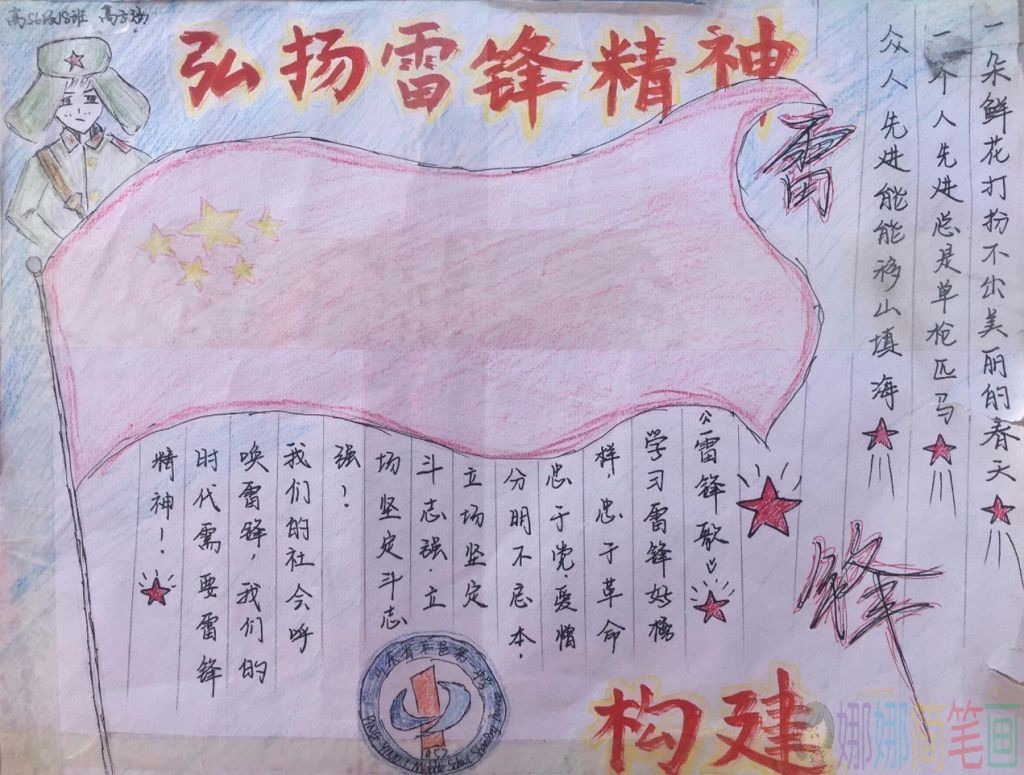 弘扬雷锋精神
雷
锋
一朵鲜花打扮不出美丽的春天
一个人先进总是单枪匹马
众人先进能能移山填海
《雷锋歌》
学习雷锋好榜
样，忠于革命
忠于党.爱憎
分明不忘本.
立场坚定
斗志强.立
场坚定斗志
强！
我们的社会呼
唤雷锋，我们的
时代需要雷锋
精神！
构建
1952
娜娜简笔画